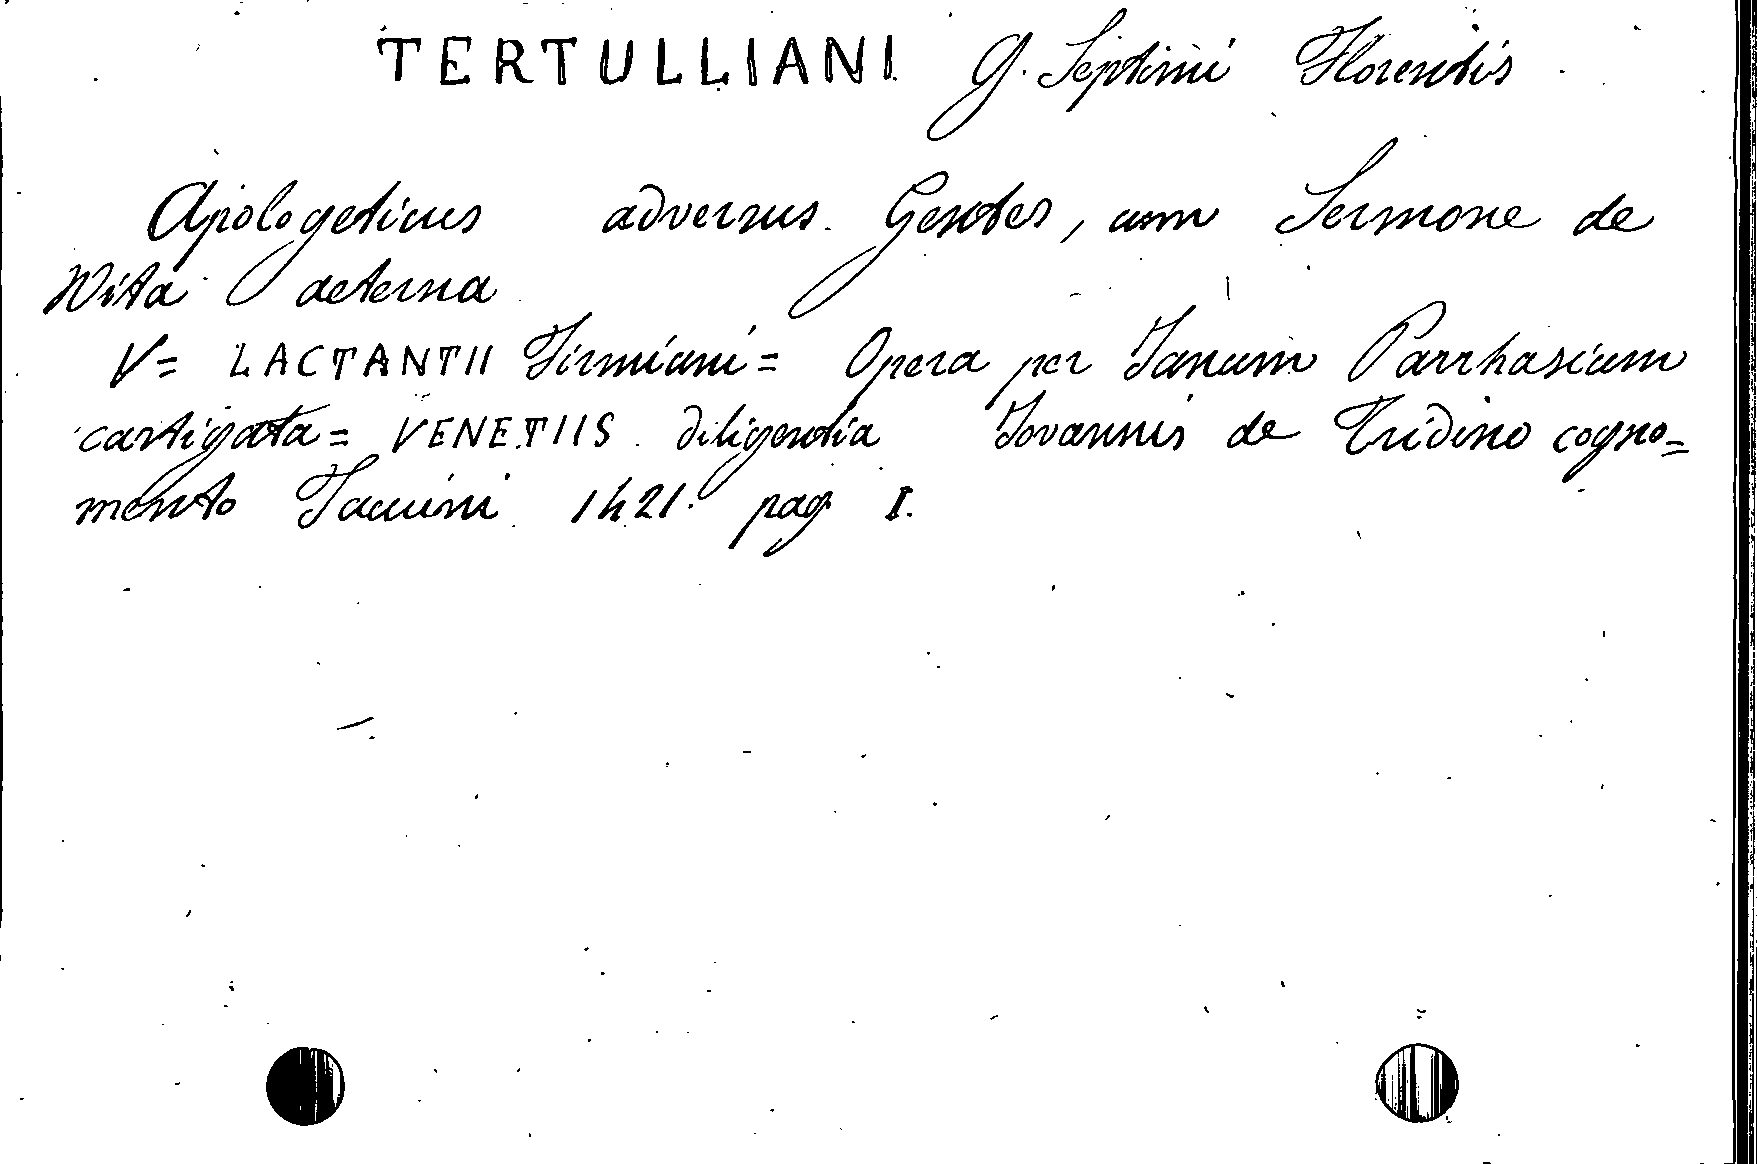 TERTULLIANI Q. Septimi Florentis
Apologeticus adversus Gentes, cum Sermone de
Vita aeterna
V= LACTANTII Firmiani= Opera per Janum Parrhasium
castigata= VENETIIS diligentia Iovannis de Tridino cogno=
mento Tacuini 1521. pag I.